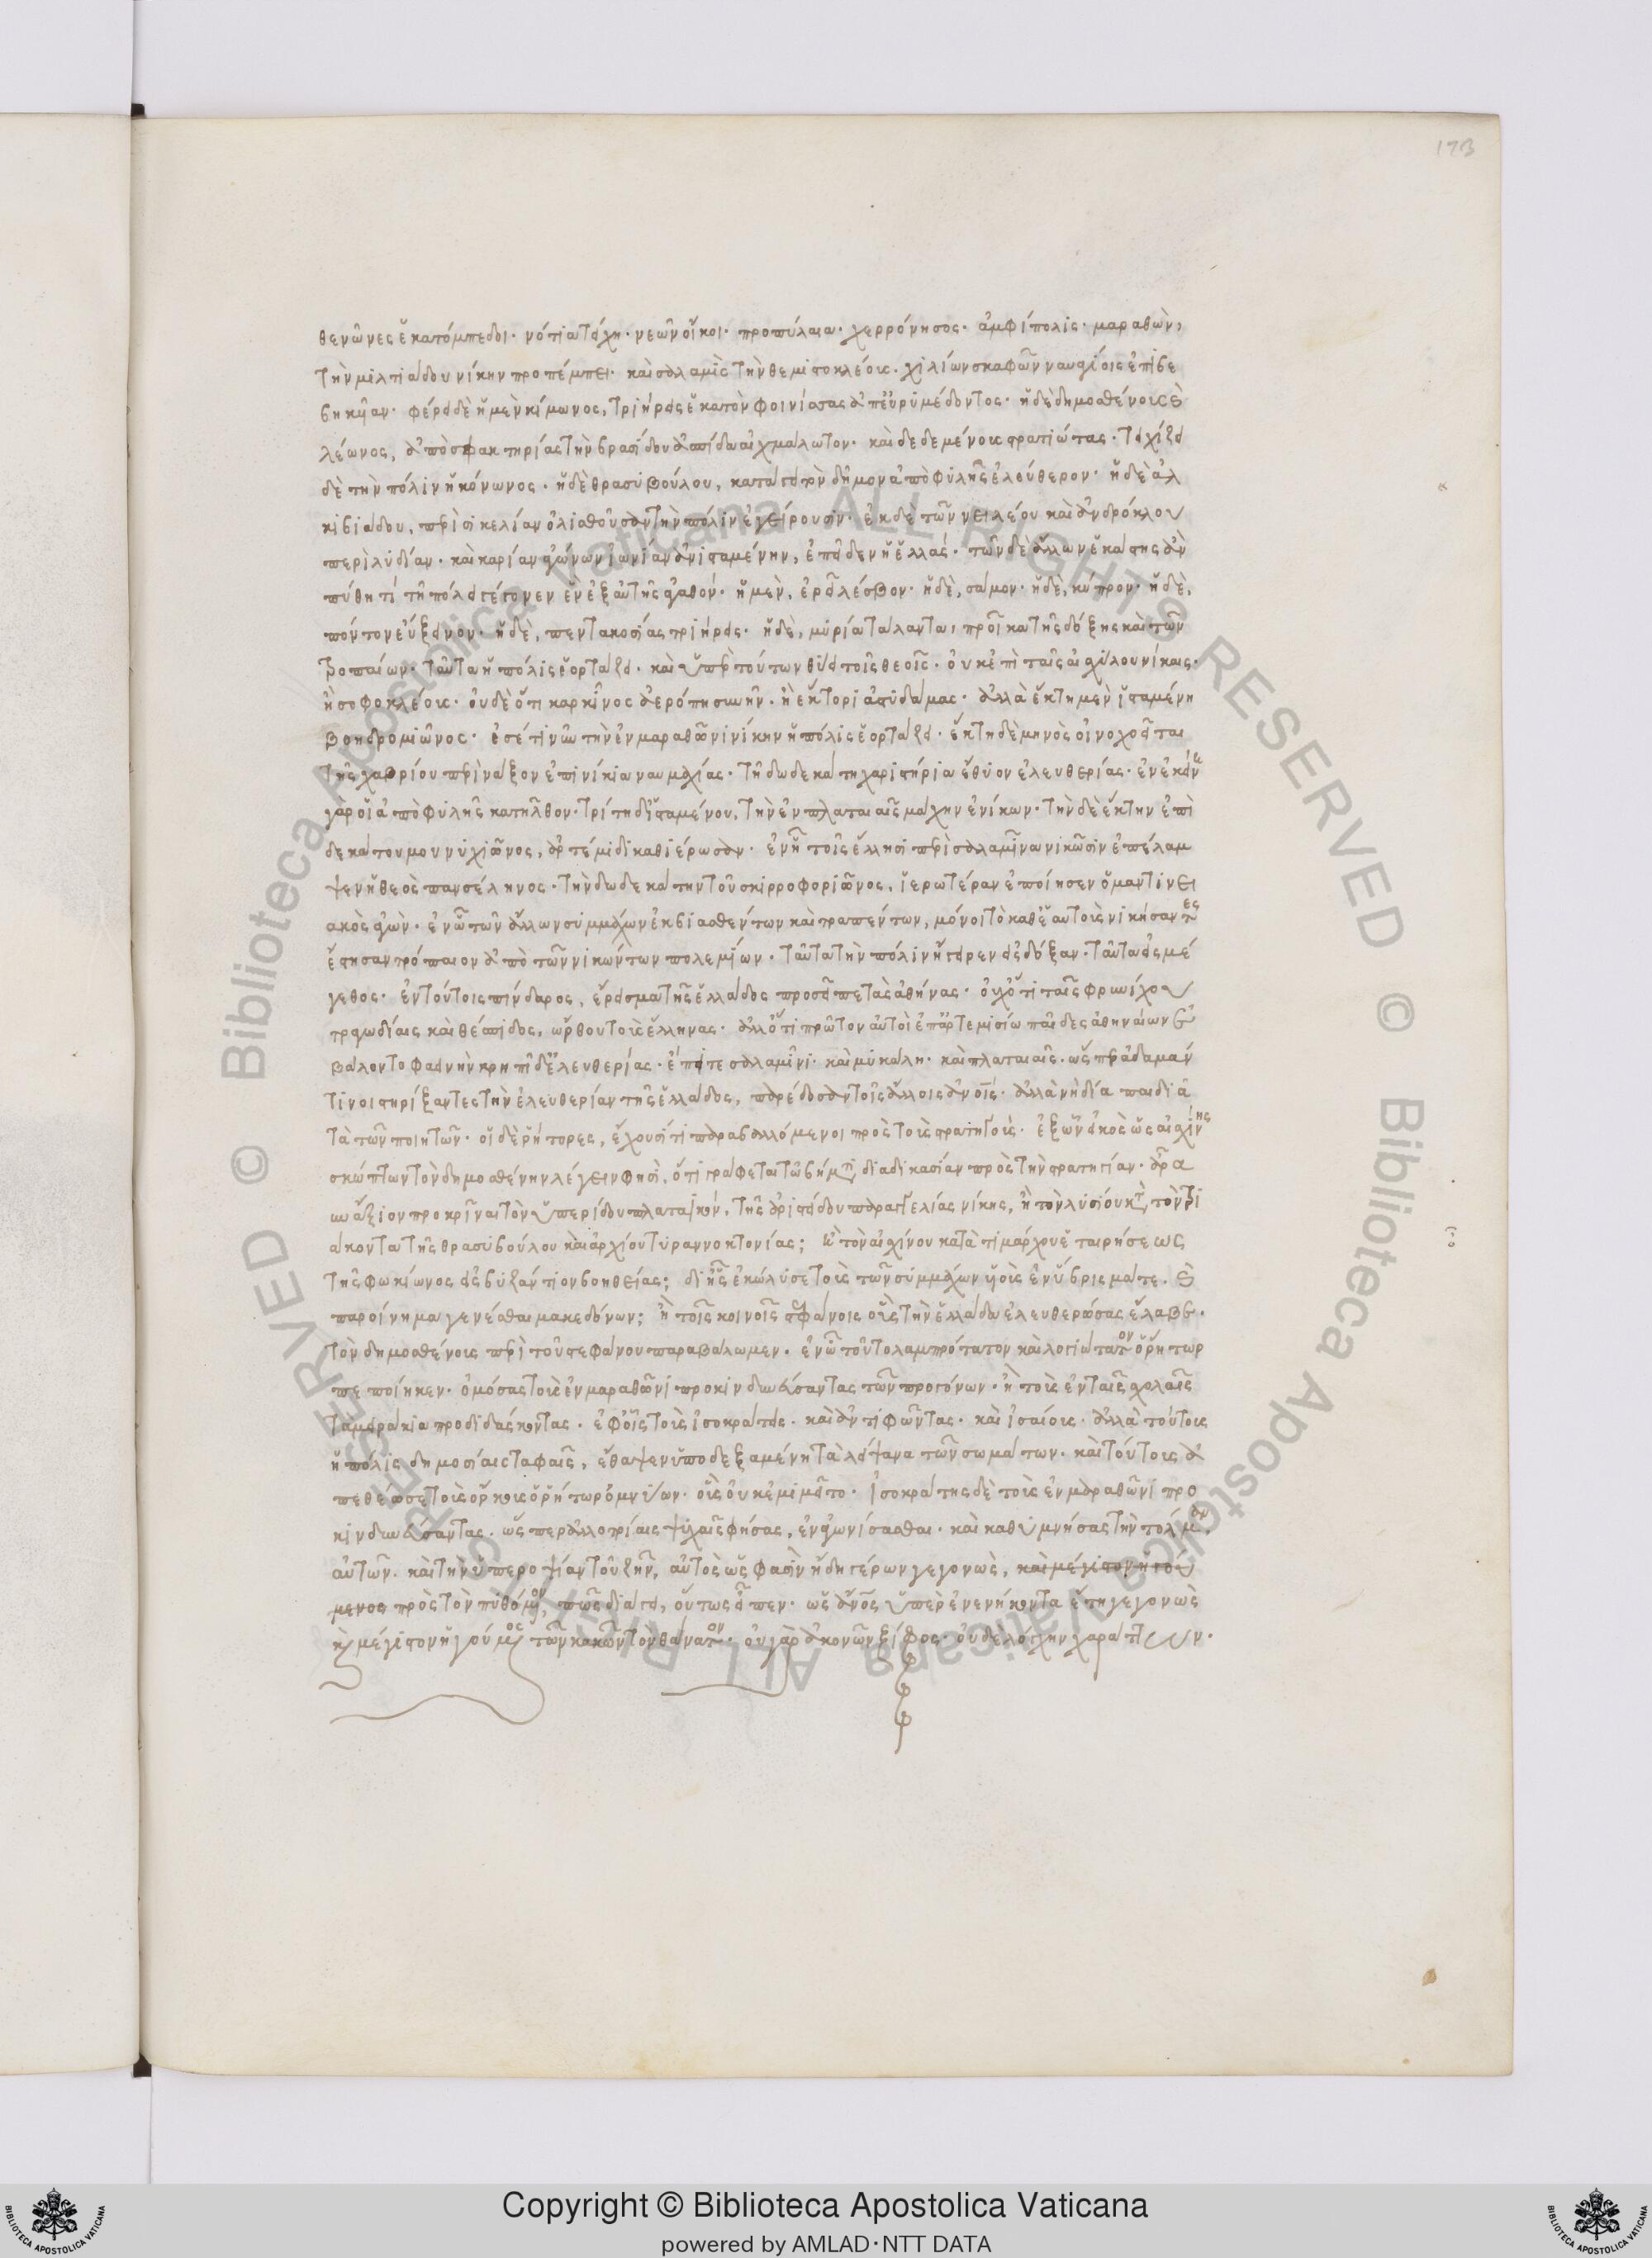 173
θενῶνες ἑκατόμπεδοι· νότια τείχη· νεῶν οἶκοι· προπύλαια· χερρόνησος· ἀμφίπολις· μαραθὼν,
τὴν μιλτιάδου νίκην προπέμπει· καὶ σαλαμὶς τὴν θεμιστοκλέους. χιλίων σκαφῶν ναυαγίοις ἐπιβε
βηκῦαν· φέρει δὲ ἡ μὲν κίμωνος, τριήρεις ἑκατὸν φοινίσσας ἀπ' εὐρυμέδοντος· ἡ δὲ δημοσθένους καὶ
λέωνος, ἀπὸ σφακτηρίας τὴν βρασίδου ἀσπίδα αἰχμάλωτον· καὶ δεδεμένους στρατιώτας. τειχίζει
δὲ τὴν πόλιν ἡ κόνωνος· ἡ δὲ θρασυβούλου, κατάγει τὸν δῆμον ἀπὸ φυλῆς ἐλεύθερον· ἡ δὲ ἀλ
κιβιάδου, περὶ σικελίαν ὀλισθοῦσαν τὴν πόλιν ἐγείρουσιν· ἐκ δὲ τῶν νειλέου καὶ ἀνδρόκλου
περὶ λυδίαν· καὶ καρίαν ἀγώνων ἰωνίαν ἀνισταμένην, ἐπεῖδεν ἡ ἑλλάς· τῶν δὲ ἄλλων ἑκάστης ἂν
πύθῃ τί τῇ πόλει γέγονεν ἓν ἐξ αὐτῆς ἀγαθόν· ἡ μὲν, ἐρεῖ λέσβον· ἡ δὲ, σάμον· ἡ δὲ, κύπρον· ἡ δὲ,
πόντον εὔξεινον· ἡ δὲ, πεντακοσίας τριήρεις· ἡ δὲ, μύρια τάλαντα, προῖκα τῆς δόξης καὶ τῶν
τροπαίων· ταῦτα ἡ πόλις ἑορτάζει· καὶ ὑπὲρ τούτων θύει τοῖς θεοῖς· οὐκ ἐπὶ ταῖς αἰσχύλου νίκαις·
ἢ σοφοκλέους· οὐδὲ ὅτι καρκῖνος ἀερόπῃ συνῆν· ἢ ἕκτορι ἀστυδάμας· ἀλλὰ ἕκτῃ μὲν ἱσταμένῃ
βοηδρομιῶνος· ἐσέτι νῦν τὴν ἐν μαραθῶνι νίκην ἡ πόλις ἑορτάζει· ἕκτῃ δὲ μηνὸς οἰνοχοεῖται
τῆς χαβρίου περὶ νάξον ἐπινίκια ναυμαχίας· τῇ δωδεκάτῃ χαριστήρια ἔθυον ἐλευθερίας· ἐν ἐκείνῃ
γὰρ οἱ ἀπὸ φυλῆς κατῆλθον· τρίτῃ δ' ἱσταμένου, τὴν ἐν πλαταιαῖς μάχην ἐνίκων· τὴν δὲ ἕκτην ἐπὶ
δεκάτου μουνυχιῶνος, ἀρτέμιδι καθιέρωσαν· ἐν ᾗ τοῖς ἕλλησι περὶ σαλαμῖνα νικῶσιν ἐπέλαμ
ψεν ἡ θεὸς πανσέληνος· τὴν δωδεκάτην τοῦ σκιρροφοριῶνος, ἱερωτέραν ἐποίησεν ὁ μαντινει
ακὸς ἀγὼν· ἐν ᾧ τῶν ἄλλων συμμάχων ἐκβιασθέντων καὶ τραπέντων, μόνοι τὸ καθ' ἑαυτοὺς νικήσαντες
ἔστησαν τρόπαιον ἀπὸ τῶν νικώντων πολεμίων· ταῦτα τὴν πόλιν ἦρεν εἰς δόξαν· ταῦτα εἰς μέ
γεθος· ἐν τούτοις πίνδαρος, ἔρεισμα τῆς ἑλλάδος προσεῖπε τὰς ἀθήνας· οὐχ' ὅτι ταῖς φρυνίχου
τραγῳδίαις καὶ θέσπιδος, ὤρθου τοὺς ἕλληνας· ἀλλ' ὅτι πρῶτον αὐτοὶ ἐπ' ἀρτεμισίω παῖδες ἀθηναίων ἐ
βάλοντο φαεινὴν κρηπῖδ' ἐλευθερίας· ἐπί τε σαλαμῖνι· καὶ μυκάλῃ· καὶ πλαταιαῖς· ὥσπερ ἀδαμάν
τινοι στηρίξαντες τὴν ἐλευθερίαν τῆς ἑλλάδος, παρέδοσαν τοῖς ἄλλοις ἀνοῖς· ἀλλὰ νὴ δία παιδιὰ
τὰ τῶν ποιητῶν· οἱ δὲ ῥήτορες, ἔχουσί τι παραβαλλόμενοι πρὸς τοὺς στρατηγούς· ἐξ ὧν εἰκὸς ὡς αἰσχίνης
σκώπτων τὸν δημοσθένην λέγειν φησὶ, ὅτι γράφεται τῷ βήματι διαδικασίαν πρὸς τὴν στρατηγίαν· ἆρα
οὖν ἄξιον προκρῖναι τὸν ὑπερίδου πλαταϊκόν, τῆς ἀριστείδου πλαταιᾶσι νίκης, ἢ τὸν λυσίου κατὰ τῶν τρι
άκοντα τῆς θρασυβούλου καὶ ἀρχίου τυραννοκτονίας; ἢ τὸν αἰσχίνου κατὰ τιμάρχου ἑταιρήσεως
τῆς φωκίωνος εἰς βυζάντιον βοηθείας; δι' ἧς ἐκώλυσε τοὺς τῶν συμμάχων υἱοὺς ἐνύβρισμά τε καὶ
παροίνημα γενέσθαι μακεδόνων; ἢ τοῖς κοινοῖς στεφάνοις οὓς τὴν ἑλλάδα ἐλευθερώσας ἔλαβεν·
τὸν δημοσθένους περὶ τοῦ στεφάνου παραβάλωμεν· ἐν ᾧ τοῦτο λαμπρότατον καὶ λογιώτατον ὁ ῥήτωρ
πεποίηκεν· ὀμόσας τοὺς ἐν μαραθῶνι προκινδυνεύσαντας τῶν προγόνων· ἢ τοὺς ἐν ταῖς σχολαῖς
τὰ μειράκια προδιδάσκοντας· ἐφ' οἷς τοὺς ἰσοκράτεις· καὶ ἀντιφῶντας· καὶ ἰσαίους· ἀλλὰ τούτους
ἡ πόλις δημοσίαις ταφαῖς, ἔθαψεν ὑποδεξαμένη τὰ λείψανα τῶν σωμάτων· καὶ τούτους ἀ
πεθέωσε τοὺς ὅρκους ὁ ῥήτωρ ὀμνύων· οὓς οὐκ ἐμιμεῖτο· ἰσοκράτης δὲ τοὺς ἐν μαραθῶνι προ
κινδυνεύσαντας, ὥσπερ ἀλλοτρίαις ψυχαῖς φήσας, ἐναγωνίσασθαι· καὶ καθυμνήσας τὴν τόλμαν
αὐτῶν· καὶ τὴν ὑπεροψίαν τοῦ ζῆν, αὐτὸς ὥς φασιν ἤδη γέρων γεγονὼς, καὶ μέγιστον ἡγού
μενος πρὸς τὸν πυθόμενον, πῶς διάγει, οὕτως εἶπεν· ὡς ἄνος ὑπὲρ ἐνενήκοντα ἔτη γεγονὼς
καὶ μέγιστον ἡγούμενος τῶν κακῶν τὸν θάνατον· οὐ γὰρ ἀκονῶν ξίφος· οὐδὲ λόγχην χαράττων·
Copyright © Biblioteca Apostolica Vaticana
powered by AMLAD·NTT DATA